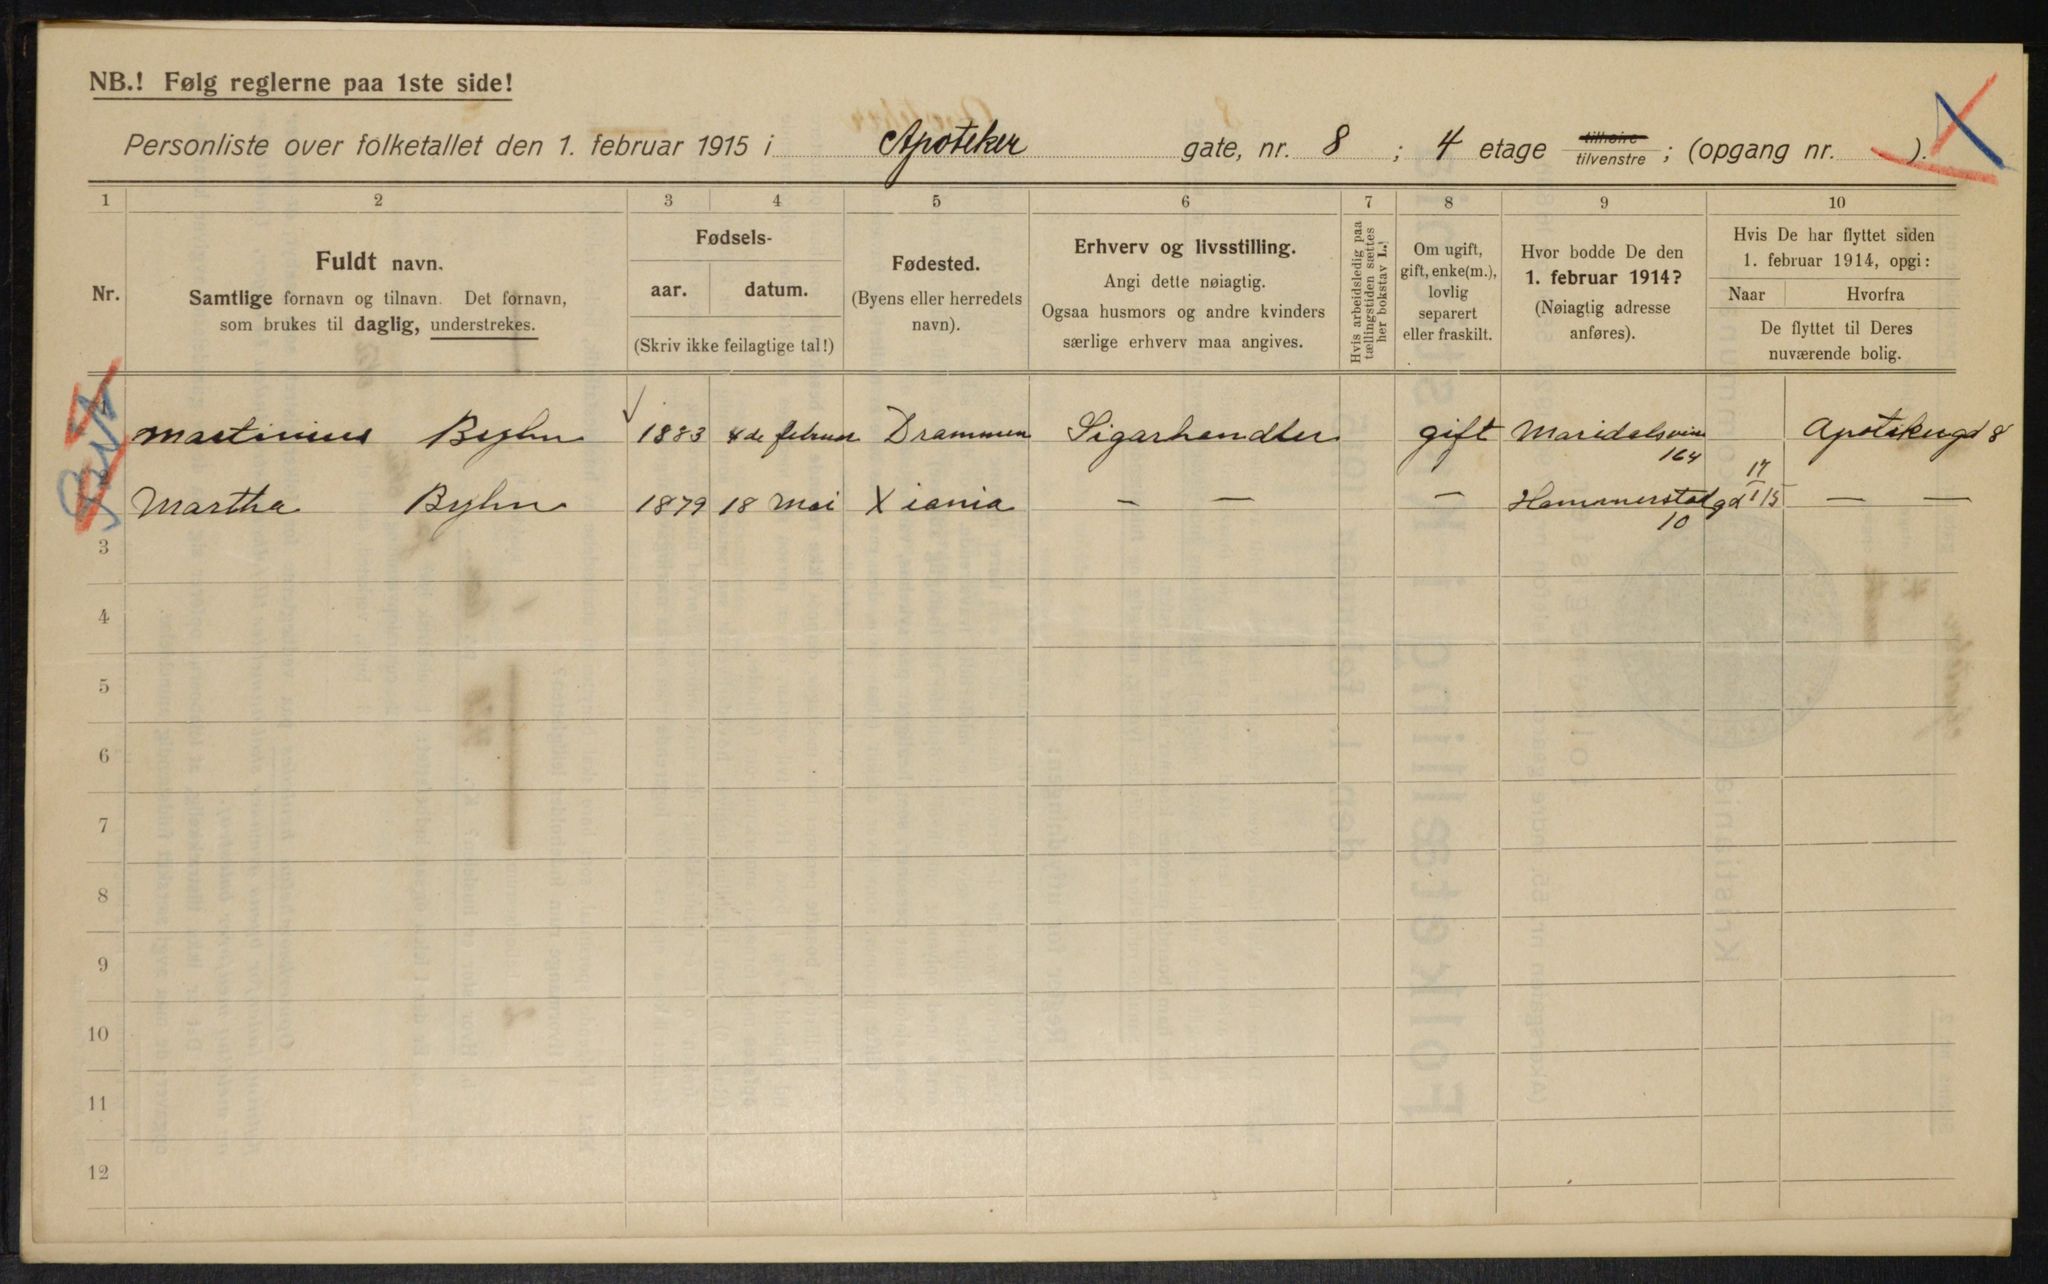 NB.! Følg reglerne paa 1ste side!
Personliste over folketallet den 1. februar 1915 i Apoteker gate, nr. 8 ; 4 etage tilhøire tilvenstre ; (opgang nr. ).
1 2 3 4 5 6 7 8 9 10
Nr.
Fuldt navn.
Samtlige fornavn og tilnavn. Det fornavn,
som brukes til daglig, understrekes.
Fødsels-
aar. datum.
(Skriv ikke feilagtige tal!)
Fødested.
(Byens eller herredets
navn).
Erhverv og livsstilling.
Angi dette nøiagtig.
Ogsaa husmors og andre kvinders
særlige erhverv maa angives.
Hvis arbeidsledig paa
tællingstiden sættes
her bokstav L.!
Om ugift,
gift, enke(m.),
lovlig
separert
eller fraskilt.
Hvor bodde De den
1. februar 1914?
(Nøiagtig adresse
anføres).
Hvis De har flyttet siden
1. februar 1914, opgi:
Naar Hvorfra
De flyttet til Deres
nuværende bolig.
Martinius Byhn 1883 4de februar Drammen Sigarhandler gift Maridalsvein 164 Apotekergd 8
2 Martha Byhn 1879 18 Mai Xiania — — — Hammerstadgd 10 — —
3
4
5
6
7
8
9
10
11
12